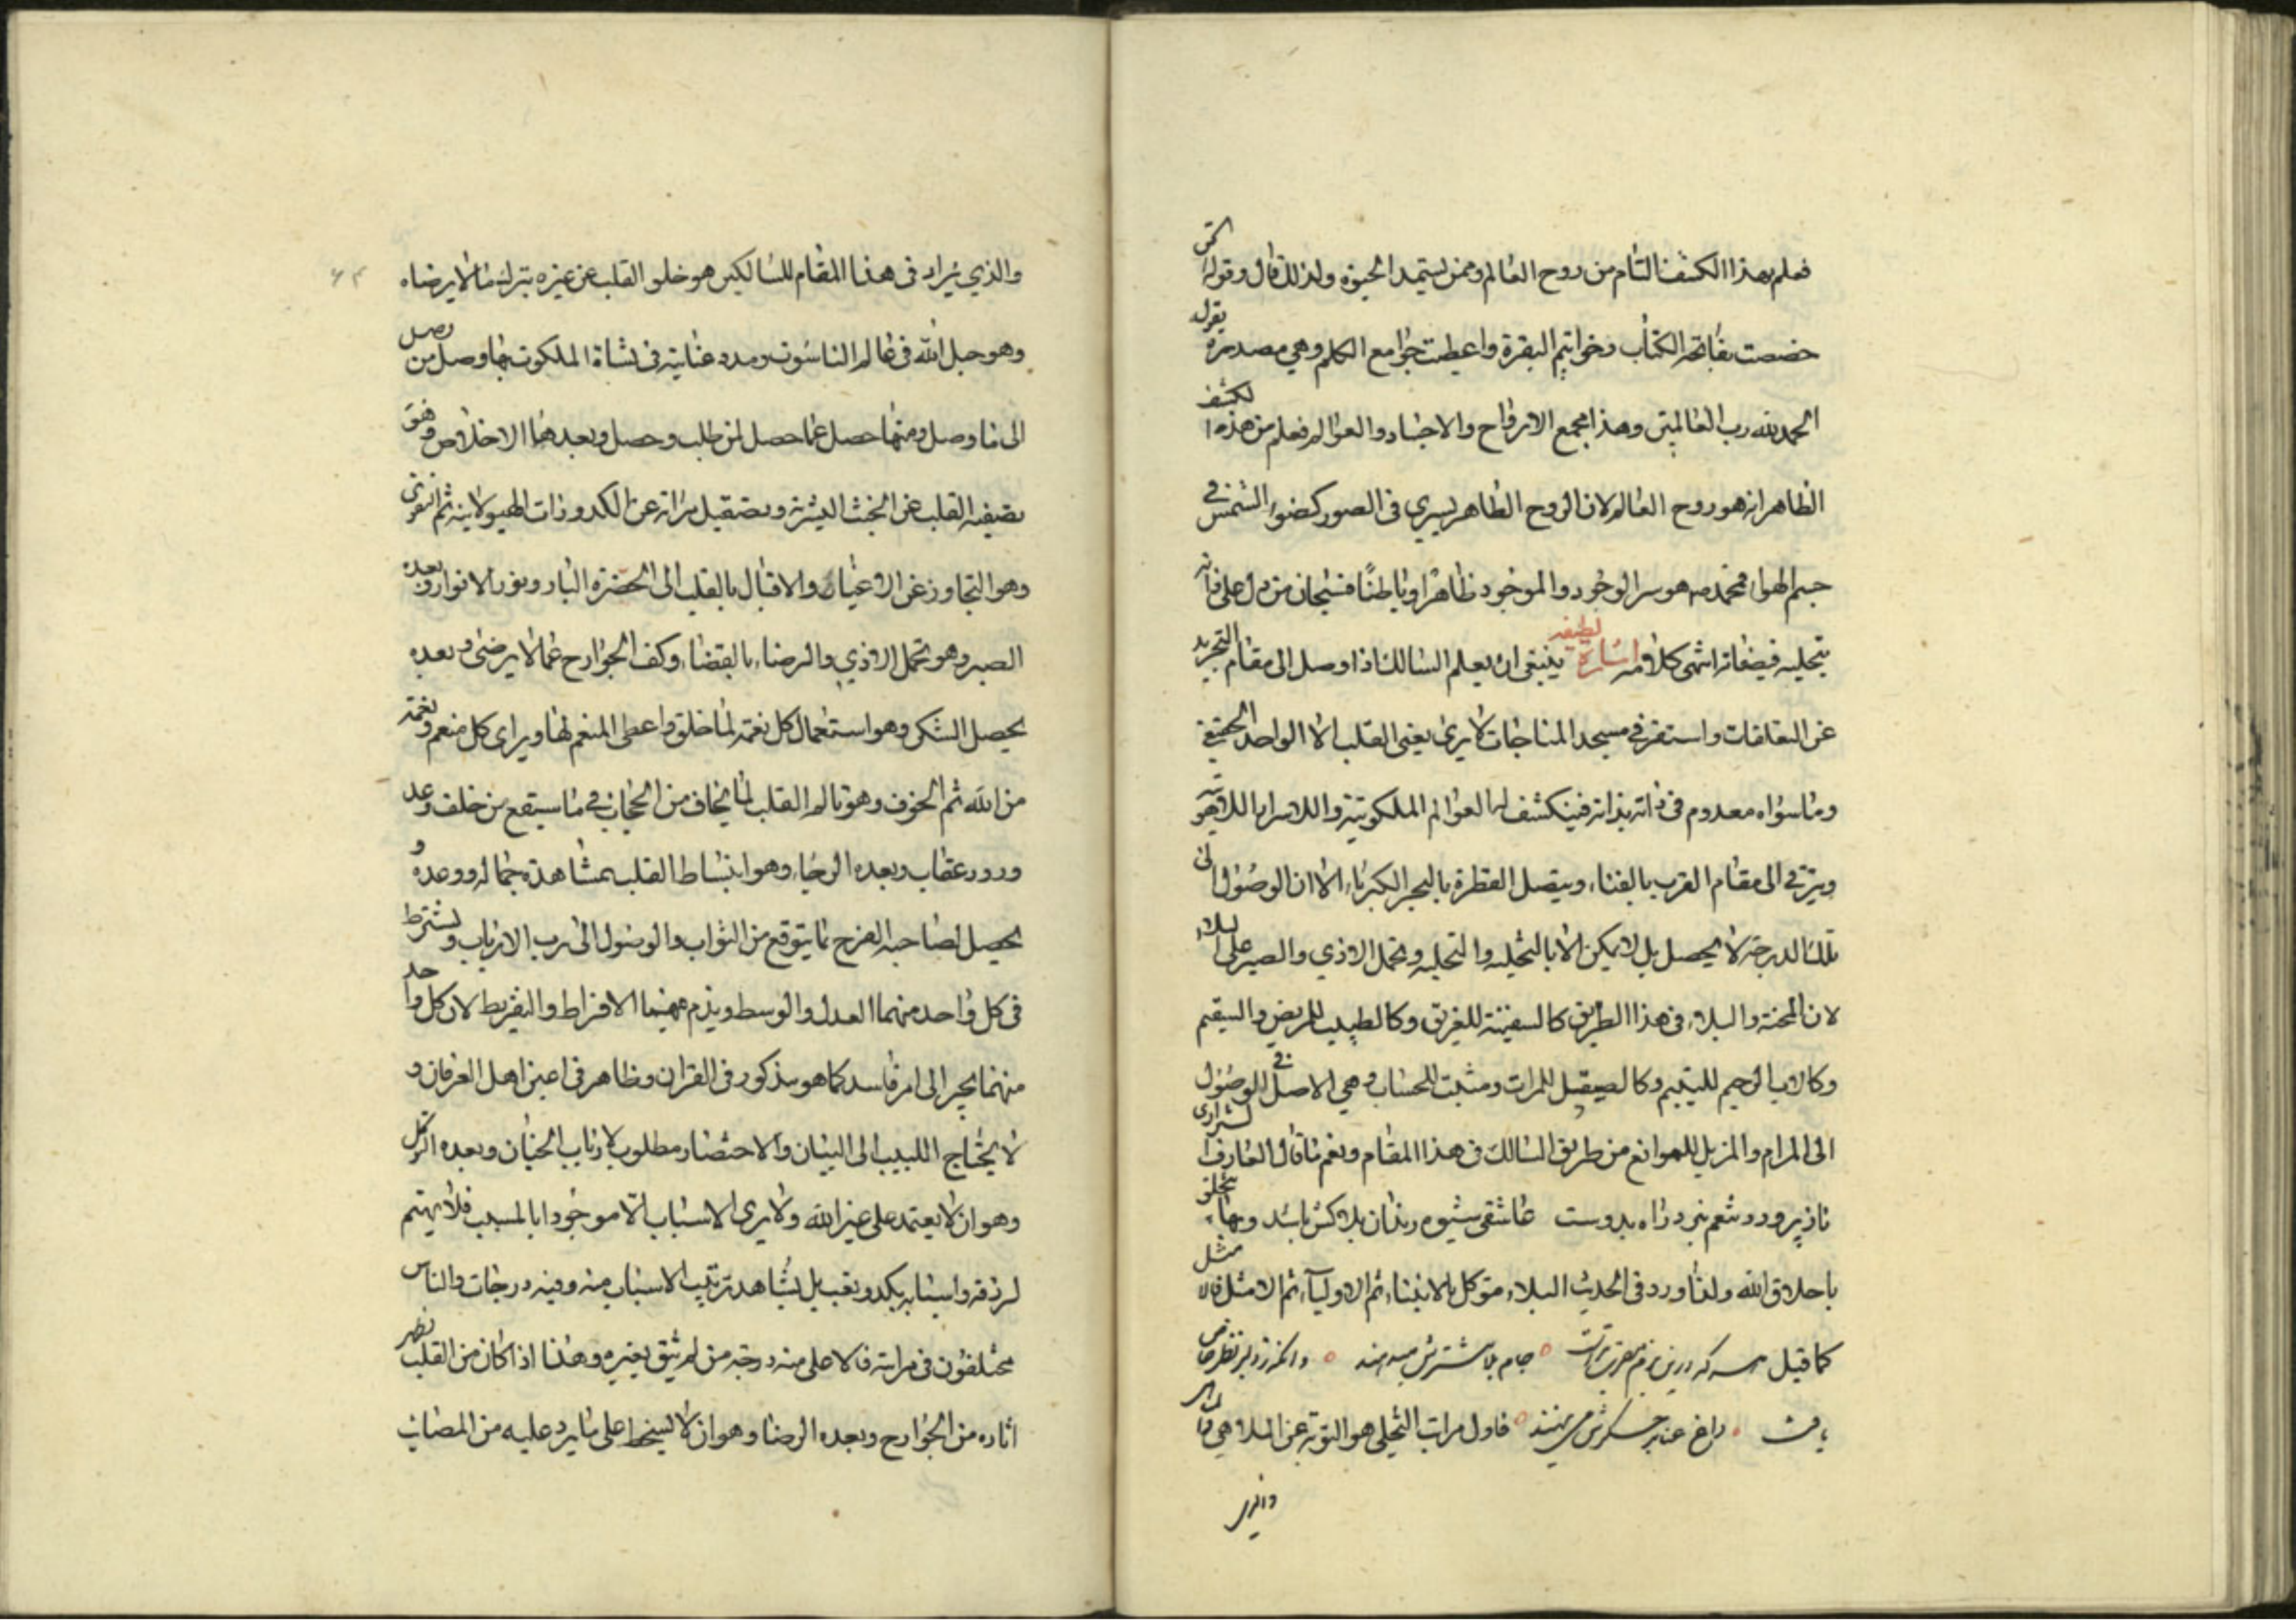 فعلم بهذا الكشف التام من روح العالم وممن يستمد الحيوة ولذلك قال وقوله
خصصت بفاتحة الكتاب وخواتيم البقرة واعطيت جوامع الكلم وهي مصدرة بقوله
الحمد لله رب العالمين وهذا مجمع الارواح والاجساد والعوالم فعلم من هذه الكشف
الظاهر انه هو روح العالم لان الروح الظاهر يسري في الصور كضوء الشمس في
جسم الهواء فمحمد ص هو سر الوجود والموجود ظاهرا وباطنا فسبحان من دل على ذاته
بتجليه في صفاته انتهى كلامه اشارة لطيفة ينبغي ان يعلم السالك اذا وصل الى مقام التجريد
عن التعلقات واستقر في مسجد المناجات لا يرى بعين القلب الا الواحد الحقيقي
وما سواه معدوم في ذاته بذاته فينكشف له العوالم الملكوتية والاسرار اللاهوتية
ويترقى الى مقام القرب بالفناء ويتصل القطرة بالبحر الكبرياء الا ان الوصول الى
تلك الدرجة لا يحصل بل لا يمكن الا بالتخلية والتحلية وتحمل الاذي والصبر على البلاء
لان المحنة والبلاء في هذا الطريق كالسفينة للغريق وكالطبيب للمريض والسقيم
وكالاب الرحيم لليتيم وكالصيقل للمرات ومثبت للحساب وهي الاصل في الوصول
الى المرام والمزيل للموانع من طريق السالك في هذا المقام ونعم ما قال العارف الشيرازى
ناز پرورد تنعم نبرد راه بدوست عاشقي شيوه رندان بلا كش باشد وبها يتخلق
باخلاق الله ولذا ورد في الحديث البلاء موكل بالانبياء ثم الاولياء ثم الامثل فالامثل
كما قيل هر كه درين بزم مقرب تراست جام بلا بيشترش ميدهند وانكه ز دلبر نظر خاص
يافت داغ عنا بر جگرش مى نهند فاول مراتب التخلى هو التوبة عن الملاهي
والذي
والذي يراد في هذا المقام للسالكين هو خلو القلب عن غيره بترك ما لا يرضاه
وهو حبل الله في عالم الناسوت ومدد عنايته في نشاة الملكوت بها وصل من وصل
الى ما وصل ومنها حصل عما حصل لمن طلب وحصل وبعدها الاخلاص وهو
تصفية القلب عن الخبث البشرية وتصقيل مراته عن الكدورات الهيولانية ثم التقوى
وهو التجاوز عن الاغيار والاقبال بالقلب الى الحضرة البار ونور الانوار وبعده
الصبر وهو تحمل الاذي والرضاء بالقضاء وكف الجوارح عما لا يرضى وبعده
يحصل الشكر وهو استعمال كل نعمة لما خلق واعطى المنعم لها ويرى كل منعم ونعمة
من الله ثم الخوف وهو تالم القلب لما يخاف من الحجاب في ما سيقع من خلف وعد
ورود عقاب وبعده الرجاء وهو انبساط القلب بمشاهدة جماله ووعده و
يحصل لصاحبه الفرح بما يتوقع من الثواب والوصول الى رب الارباب ويشترط
في كل واحد منهما العدل والوسط ويذم فيهما الافراط والتفريط لان كل واحد
منهما يجر الى امر فاسد كما هو مذكور في القران وظاهر في اعين اهل العرفان و
لا يحتاج اللبيب الى البيان والاختصار مطلوب لارباب الجنان وبعده التوكل
وهو ان لا يعتمد على غير الله ولا يرى الاسباب الا موجودا بالمسبب فلا يهتم
لرزقه واسبابه بكد وتعب بل يشاهد ترتيب الاسباب منه وفيه درجات والناس
مختلفون في مراتبه فالاعلى منه درجة من لم يثق بغيره وهذا اذا كان من القلب تظهر
اثاره من الجوارح وبعده الرضا وهو ان لا يسخط على ما يرد عليه من المصائب